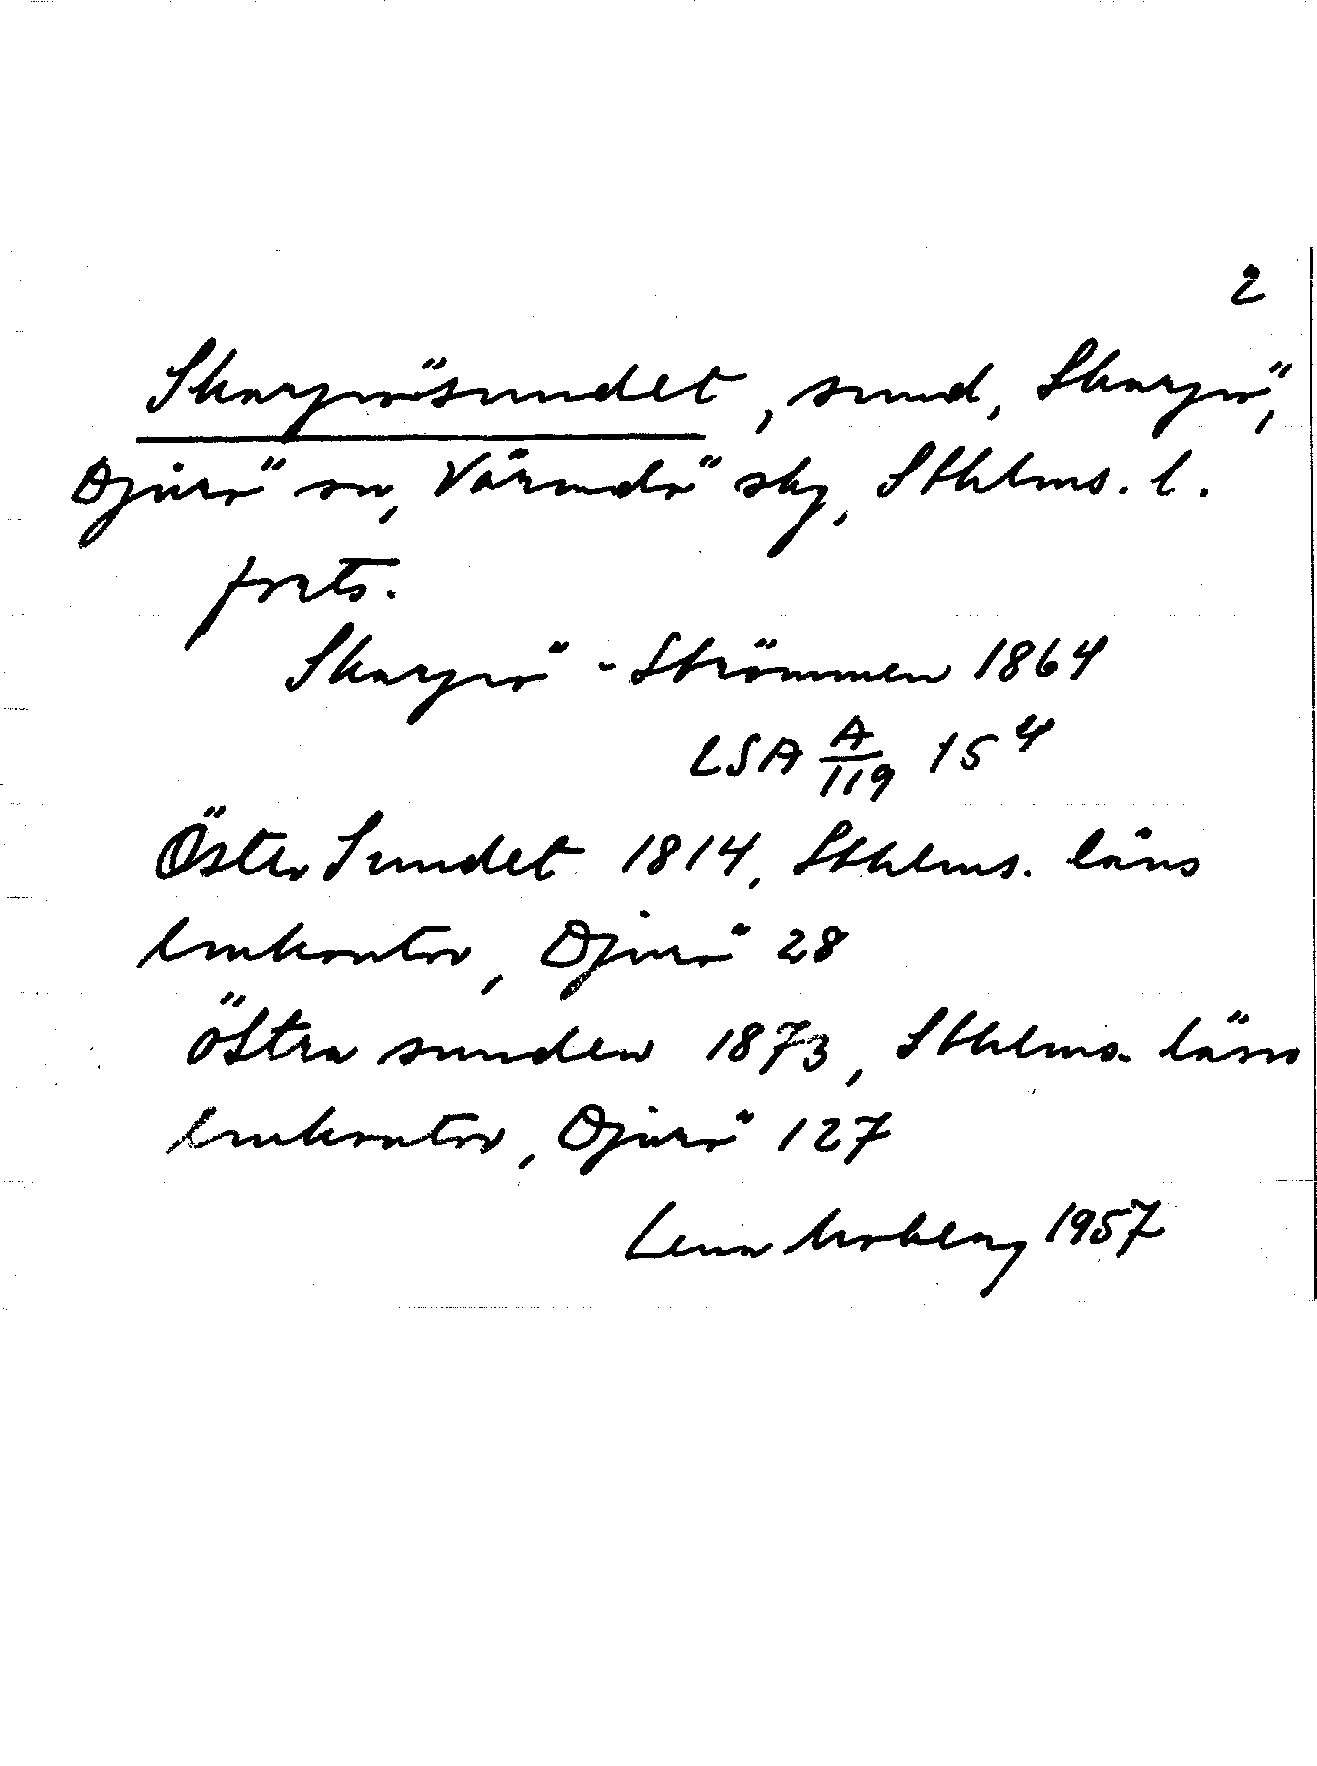 2
Skarpösundet, sund, Skarpö,
Djurö sn, Värmdö skg, Sthlms. l.
forts.
Skarpö-Strömmen 1864
LSA A/119 15⁴
Öster Sundet 1814, Sthlms. läns
lmkontor, Djurö 28
östra sunden 1873, Sthlms. läns
lmkontor, Djurö 127
Lena Moberg 1957